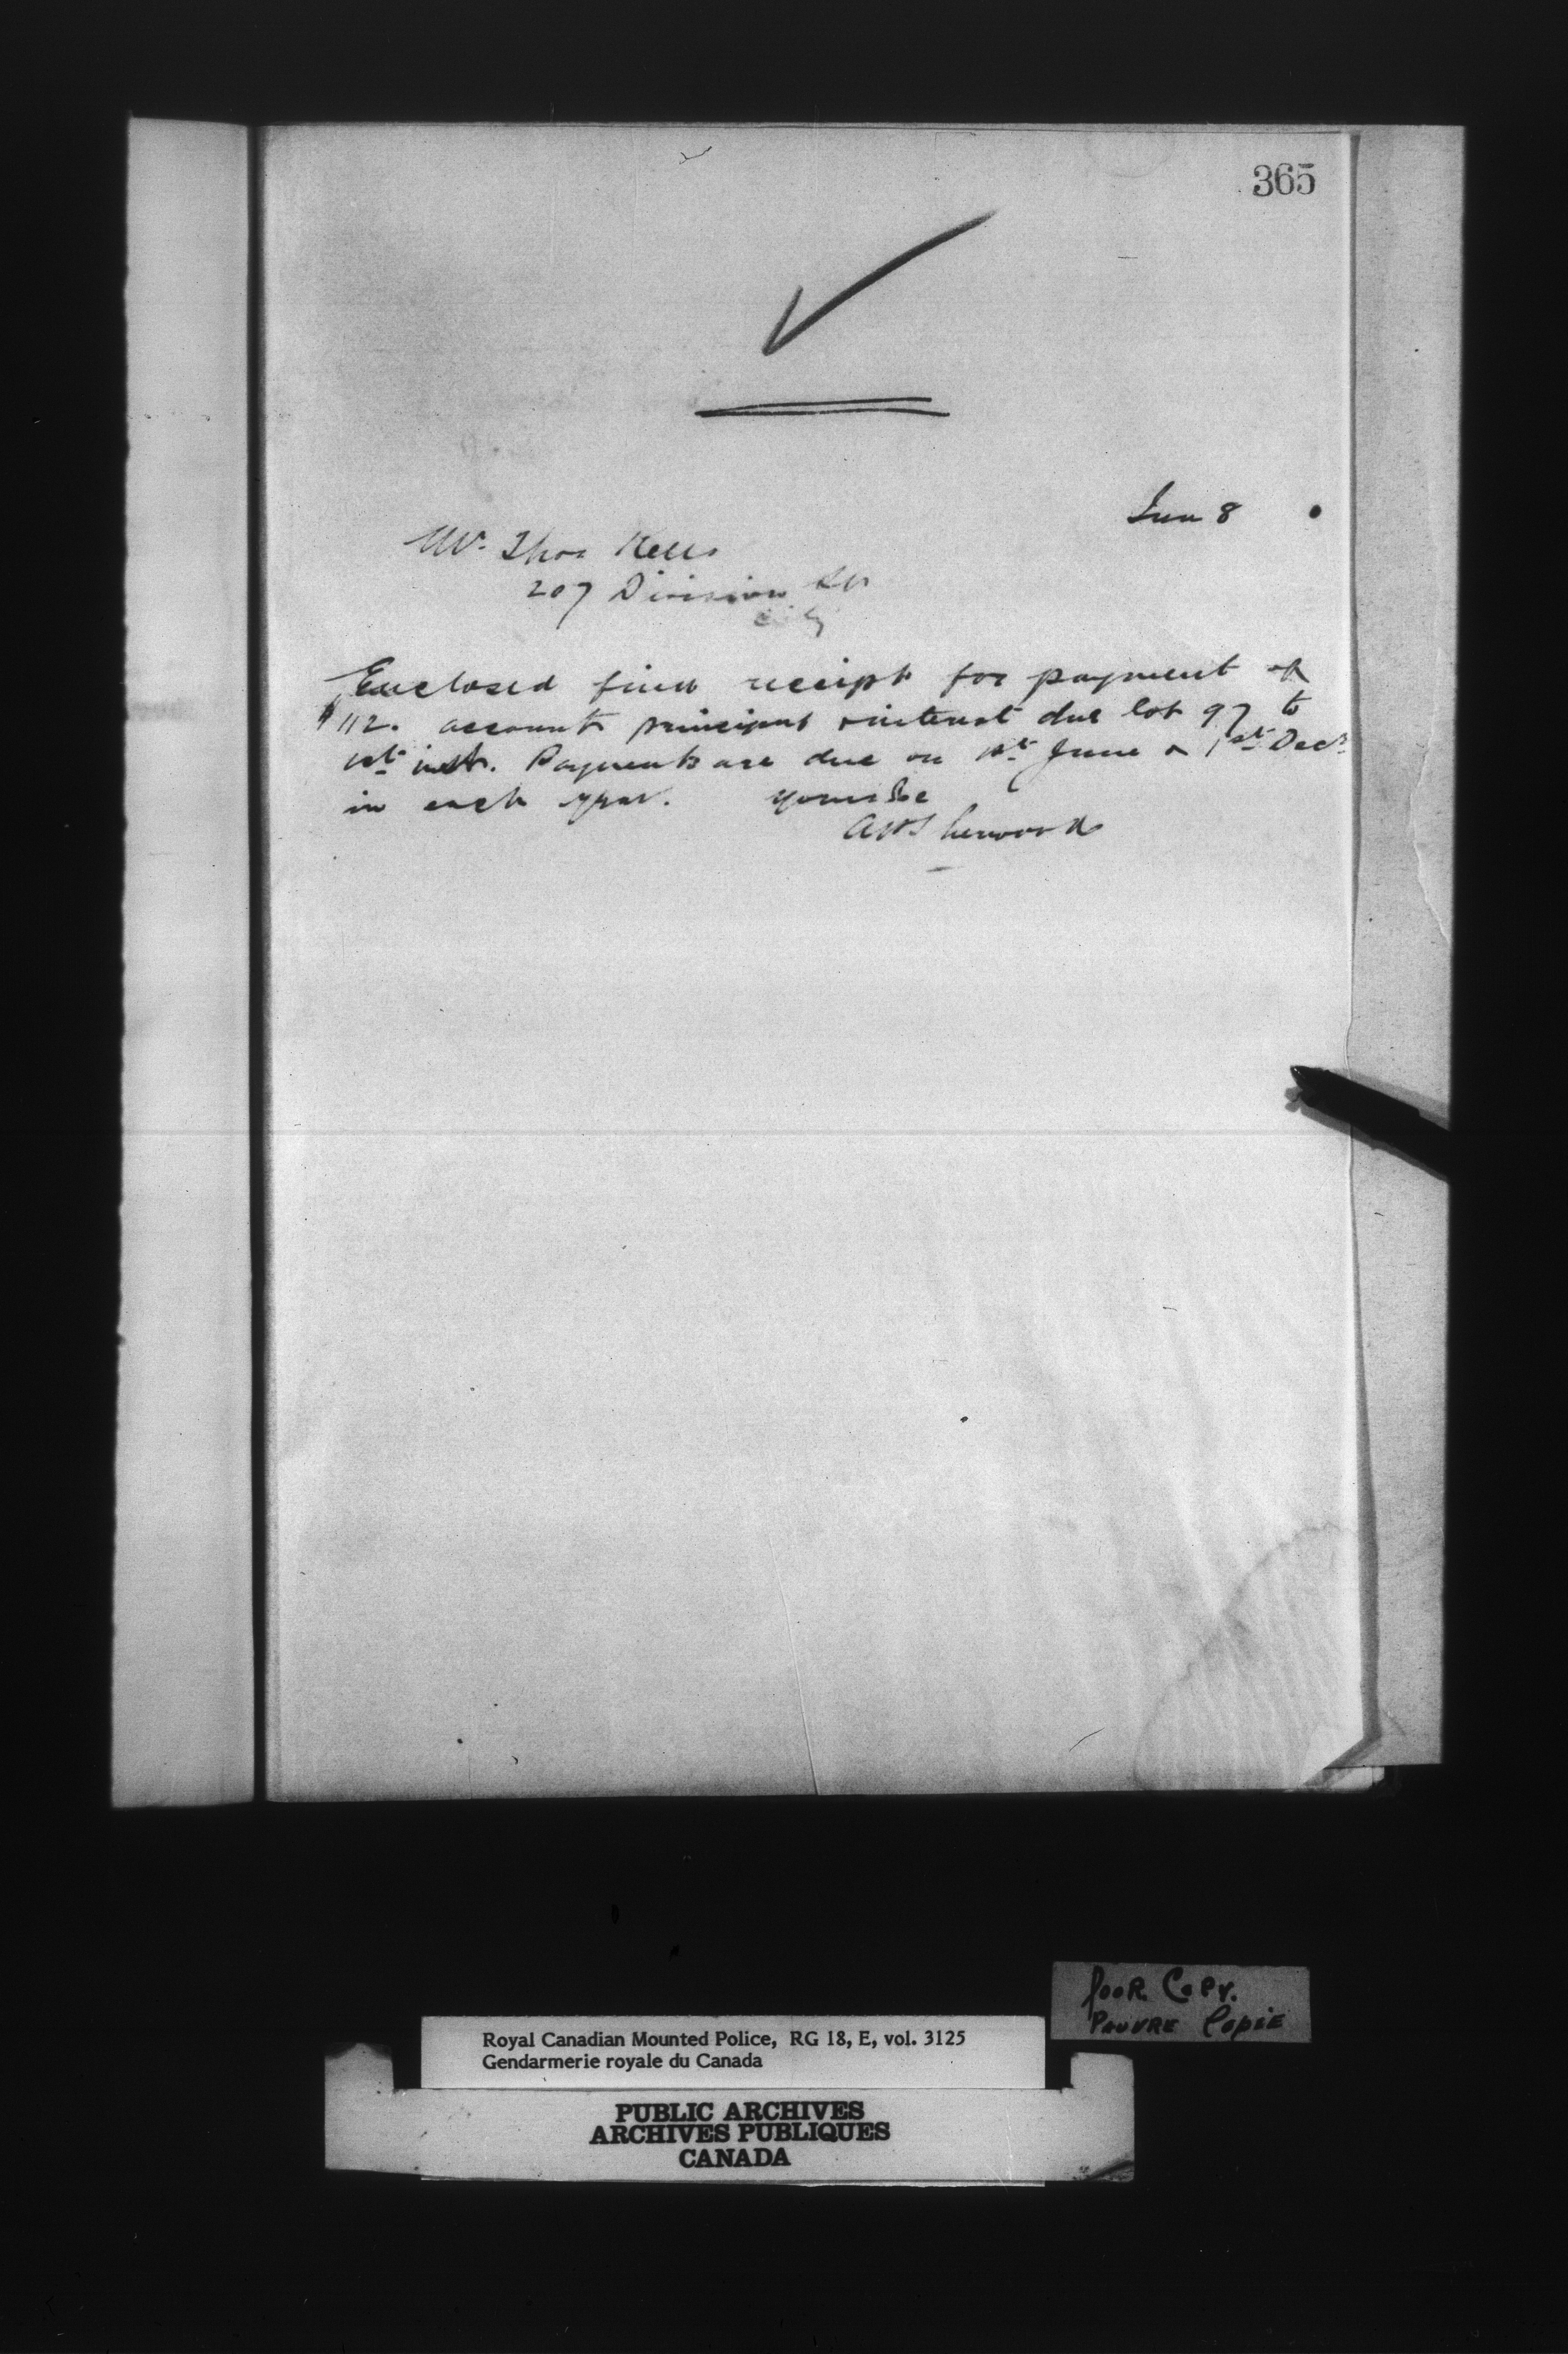 365
Jun 8
Mr. Thos Kells
207 Division St
City
Enclosed find receipt for payment of
$112. account principal & interest due lot 97 to
1st inst. Payments are due on 1st June & 1st Decr
in each year. Yours &c
AP Sherwood
Poor Copy.
Pauvre Copie
Royal Canadian Mounted Police, RG 18, E, vol. 3125
Gendarmerie royale du Canada
PUBLIC ARCHIVES
ARCHIVES PUBLIQUES
CANADA